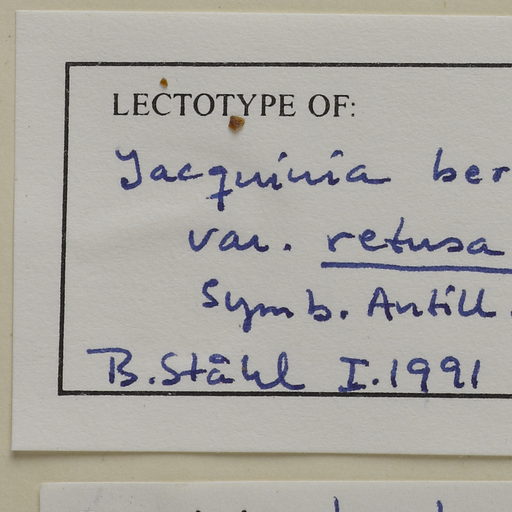 LECTOTYPE OF:
Jacquinia ber
var. retusa
Symb. Antill.
B. Ståhl I.1991